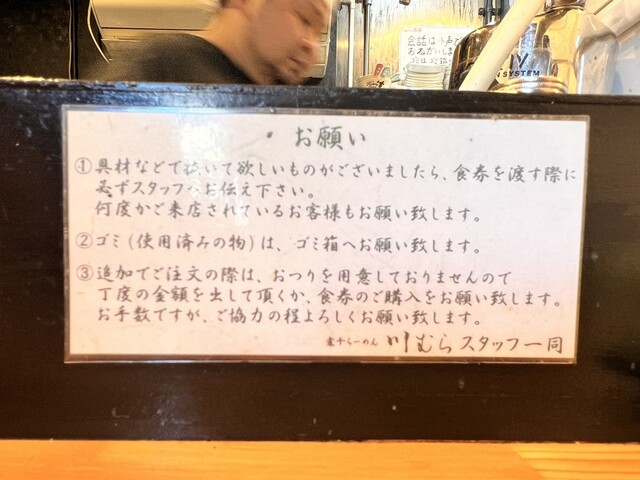 会話は小声で
お願い
①具材などで抜いて欲しいものがございましたら、食券を渡す際に
必ずスタッフへお伝え下さい。
何度かご来店されているお客様もお願い致します。
②ゴミ(使用済みの物)は、ゴミ箱へお願い致します。
③追加でご注文の際は、おつりを用意しておりませんので
丁度の金額を出して頂くか、食券のご購入をお願い致します。
お手数ですが、ご協力の程よろしくお願い致します。
煮干らーめん 川むらスタッフ一同
V
SYSTEM